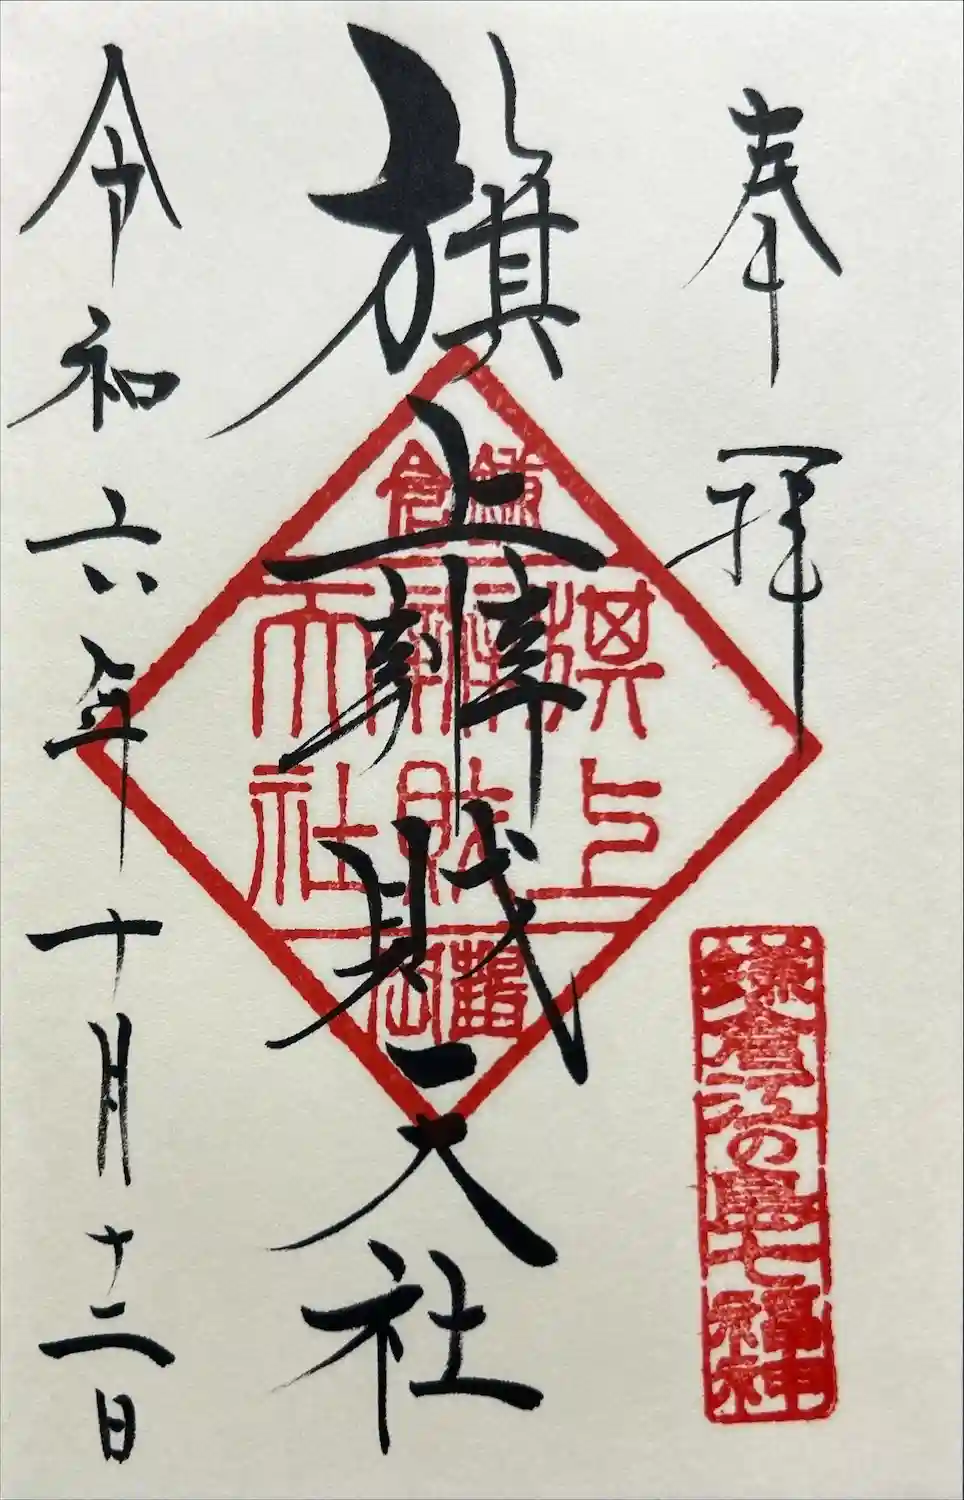 奉拝
鎌倉江の島七福神
旗上辨財天社
鎌倉
旗上
辨財
天社
鶴岡
令和六年十月十二日